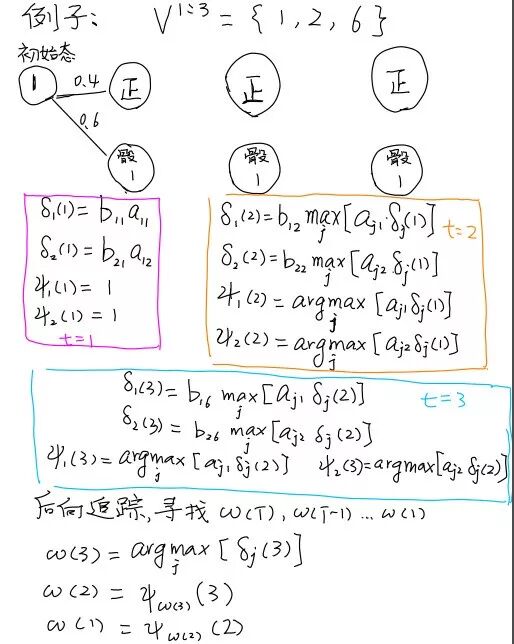 例子: V^{1:3} = {1, 2, 6}
初始态
1 0.4 正 正 正
0.6
骰1 骰1 骰1
δ₁(1) = b₁₁a₁₁
δ₂(1) = b₂₁a₁₂
ψ₁(1) = 1
ψ₂(1) = 1
t=1
δ₁(2) = b₁₂ max_j [a_{j1}·δ_j(1)] t=2
δ₂(2) = b₂₂ max_j [a_{j2}·δ_j(1)]
ψ₁(2) = argmax_j [a_{j1}δ_j(1)]
ψ₂(2) = argmax_j [a_{j2}δ_j(1)]
δ₁(3) = b₁₆ max_j [a_{j1} δ_j(2)] t=3
δ₂(3) = b₂₆ max_j [a_{j2} δ_j(2)]
ψ₁(3) = argmax_j [a_{j1}δ_j(2)] ψ₂(3) = argmax_j [a_{j2} δ_j(2)]
后向追踪, 寻找 ω(T), ω(T-1) ... ω(1)
ω(3) = argmax_j [δ_j(3)]
ω(2) = ψ_{ω(3)}(3)
ω(1) = ψ_{ω(2)}(2)